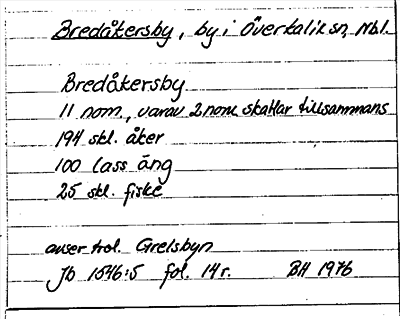 Bredåkersby, by i Överkalix sn, Nbl.
Bredåkersby
11 nom., varav 2 nom. skattar tillsammans
194 skl. åker
100 lass äng
25 skl. fiske
avser trol. Grelsbyn
Jb 1546:5 fol. 14r. BH 1976